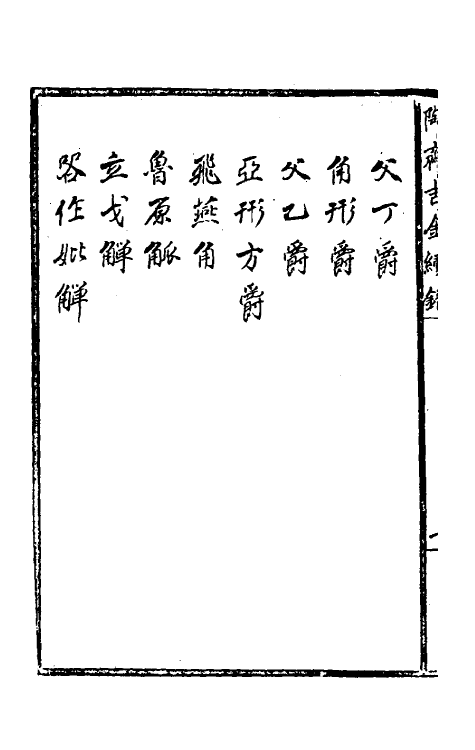 陶齋吉金續錄
父丁爵
角形爵
父乙爵
亞形方爵
飛燕角
魯原觚
立戈觶
咎作妣觶